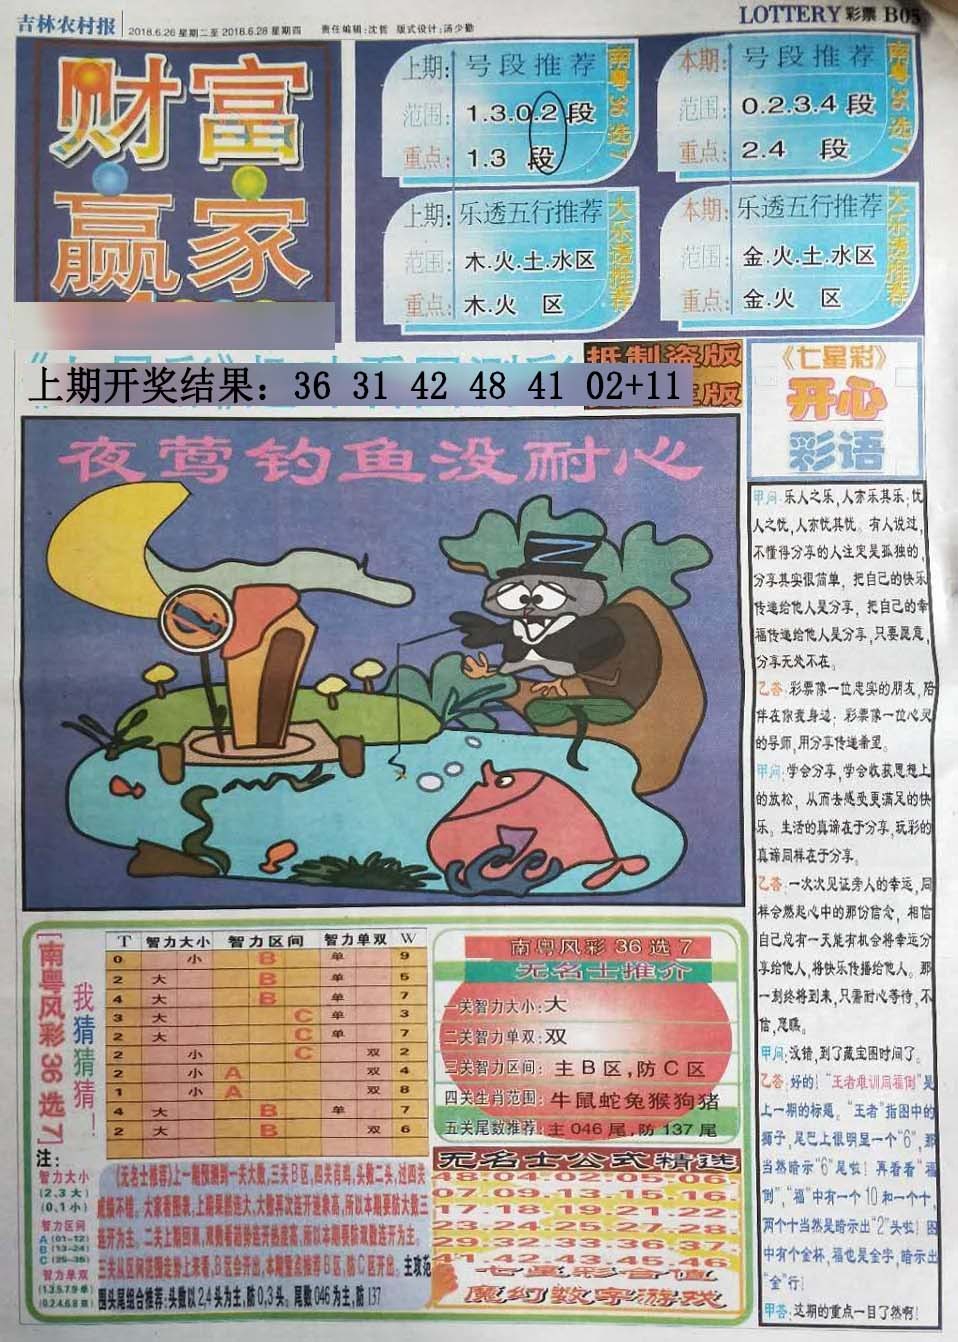 吉林农村报
2018.6.26 星期二至 2018.6.28 星期四 责任编辑:沈哲 版式设计:汤少勤
LOTTERY 彩票 B05
财富
赢家
上期: 号段推荐
范围: 1.3.0.2 段
重点: 1.3 段
南粤36选7
本期: 号段推荐
范围: 0.2.3.4 段
重点: 2.4 段
南粤36选7
上期: 乐透五行推荐
范围: 木.火.土.水区
重点: 木.火 区
大乐透推荐
本期: 乐透五行推荐
范围: 金.火.土.水区
重点: 金.火 区
大乐透推荐
抵制盗版
上期开奖结果: 36 31 42 48 41 02+11
夜莺钓鱼没耐心
《七星彩》
开心
彩语
甲问:乐人之乐,人亦乐其乐;忧
人之忧,人亦忧其忧。有人说过,
不懂得分享的人注定是孤独的,
分享其实很简单,把自己的快乐
传递给他人是分享,把自己的幸
福传递给他人是分享,只要愿意,
分享无处不在。
乙答:彩票像一位忠实的朋友,陪
伴在你我身边;彩票像一位心灵
的导师,用分享传递希望。
甲问:学会分享,学会收获思想上
的放松,从而去感受更满足的快
乐。生活的真谛在于分享,玩彩的
真谛同样在于分享。
乙答:一次次见证旁人的幸运,同
样会燃起心中的那份信念,相信
自己总有一天能有机会将幸运分
享给他人,将快乐传播给他人。那
一刻终将到来,只需耐心等待,不
信,愿瞧。
甲问:没错,到了藏宝图时间了。
乙答:好的!“王者难训周福倒”是
上一期的标题。“王者”指图中的
狮子,尾巴上很明显一个“6”,那
当然暗示“6”尾啦!再看看“福
倒”,“福”中有一个10和一个十,
两个十当然是暗示出“2”头啦!图
中有个金杯,福也是金字,暗示出
“金”行!
甲答:这期的重点一目了然啊!
[南粤风彩36选7]
我猜猜猜!
T 智力大小 智力区间 智力单双 W
0 小 B 单 9
2 大 B 单 5
4 大 B 单 7
3 大 C 单 3
2 大 C 单 7
2 小 C 双 2
2 小 A 双 4
1 小 A 双 8
4 大 B 单 7
2 大 B 双 6
注:
智力大小
(2,3大)
(0,1小)
智力区间
A (01-12)
B (13-24)
C (25-36)
智力单双
(1.3.5.7.9单)
(0.2.4.6.8双)
《无名士推荐》上一期预测到一关大数,三关B区,四关有鸡,头数二头,过四关
成绩不错。大家看图表,上期果然连大,大数再次连开迹象高,所以本期要防大数三
连开为主。二关上期回双,观侧看趋势连开热度高,所以本期要防双数连开为主。
三关从区间范围走势上来看,B区会开出,本期重点推荐B区,防C区开出。主攻范
围头尾组合推荐:头数以2.4头为主,防0.3头。尾数046为主,防137
南粤风彩36选7
无名士推介
一关智力大小: 大
二关智力单双: 双
三关智力区间: 主B区,防C区
四关生肖范围: 牛鼠蛇兔猴狗猪
五关尾数推荐: 主046尾,防137尾
无名士公式精选
48.04.02.05.06.
07.09.13.15.16.
17.18.19.21.22.
23.24.25.27.28.
29.32.33.36.37.
41.42.43.45.46
七星彩合值
魔幻数字游戏